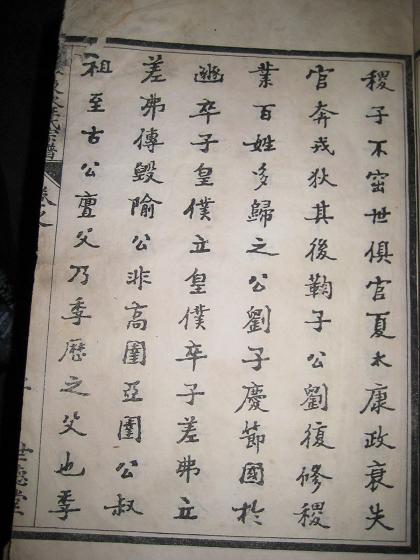 稷子不窋世俱官夏太康政衰失
官奔戎狄其後鞠子公劉復修稷
業百姓多歸之公劉子慶節國於
豳卒子皇僕立皇僕卒子差弗立
差弗傳毀隃公非高圉亞圉公叔
祖至古公亶父乃季歷之父也季
氏宗譜
世德堂